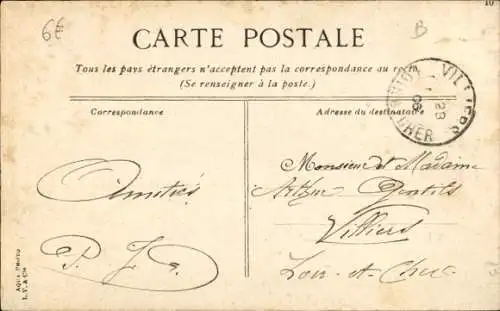 6€
B
10
CARTE POSTALE
Tous les pays étrangers n'acceptent pas la correspondance au recto
(Se renseigner à la poste.)
VILLIERS
23
CHER
Correspondance
Adresse du destinataire
Amitiés
P. L.
Monsieur et Madame
Arthur Gentils
Villiers
Loir-et-Cher
AQUA PHOTO
L. V. & Cie